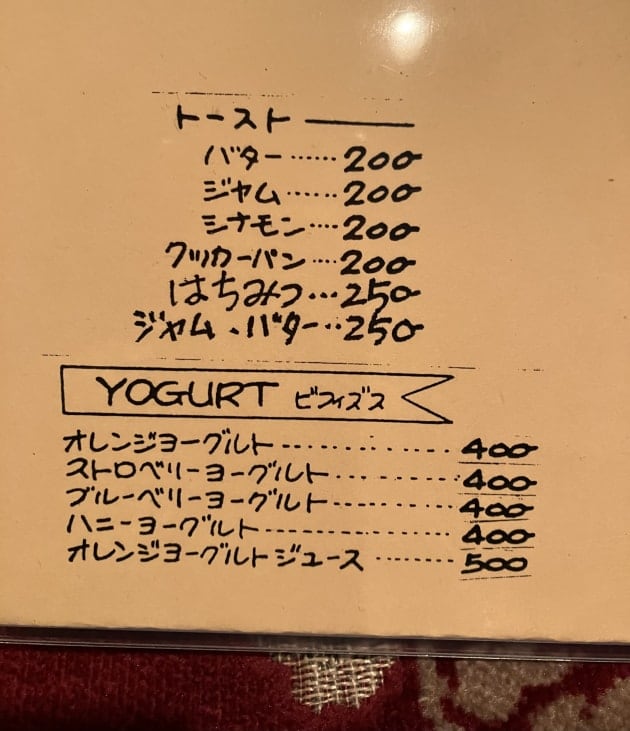 トースト
バター……200
ジャム……200
シナモン…‥200
クッカーパン‥‥200
はちみつ…250
ジャム・バター…‥250
YOGURT ビフィズス
オレンジヨーグルト-----------400
ストロベリーヨーグルト--------400
ブルーベリーヨーグルト--------400
ハニーヨーグルト------------400
オレンジヨーグルトジュース ········500